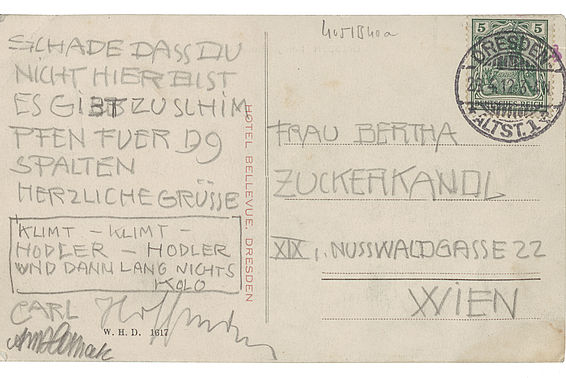 SCHADE DASS DU
NICHT HIER BIST
ES GIEBT ZU SCHIM
PFEN FUER D9
SPALTEN
HERZLICHE GRÜSSE
KLIMT – KLIMT –
HODLER – HODLER
UND DANN LANG NICHTS
KOLO
CARL
W. H. D. 1617
HOTEL BELLEVUE, DRESDEN
5 5
DRESDEN
ALTST. 1
FRAU BERTHA
ZUCKERKANDL
XIX, NUSSWALDGASSE 22
WIEN